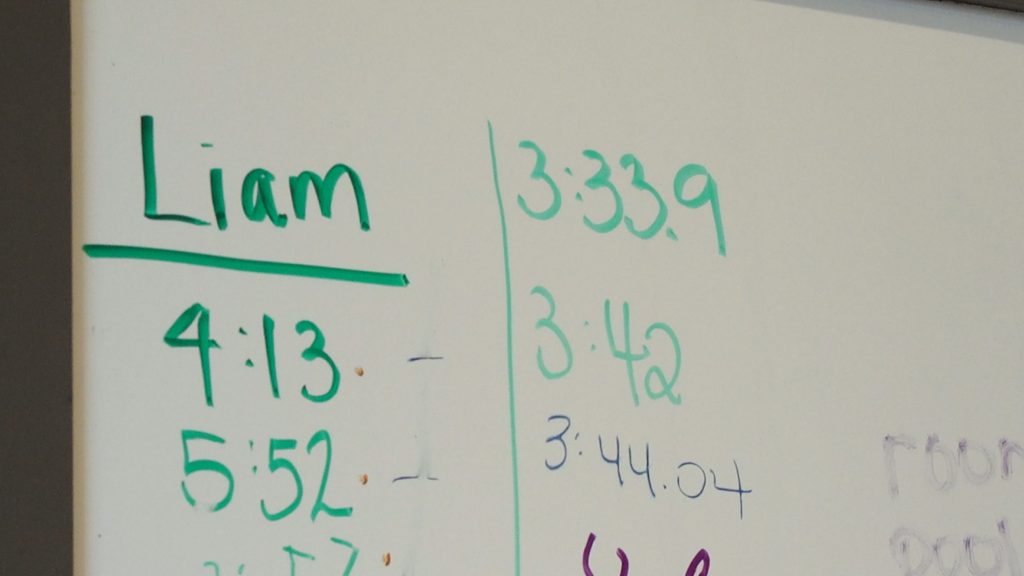 Liam
4:13. -
5:52. -
3:33.9
3:42
3:44.04
room